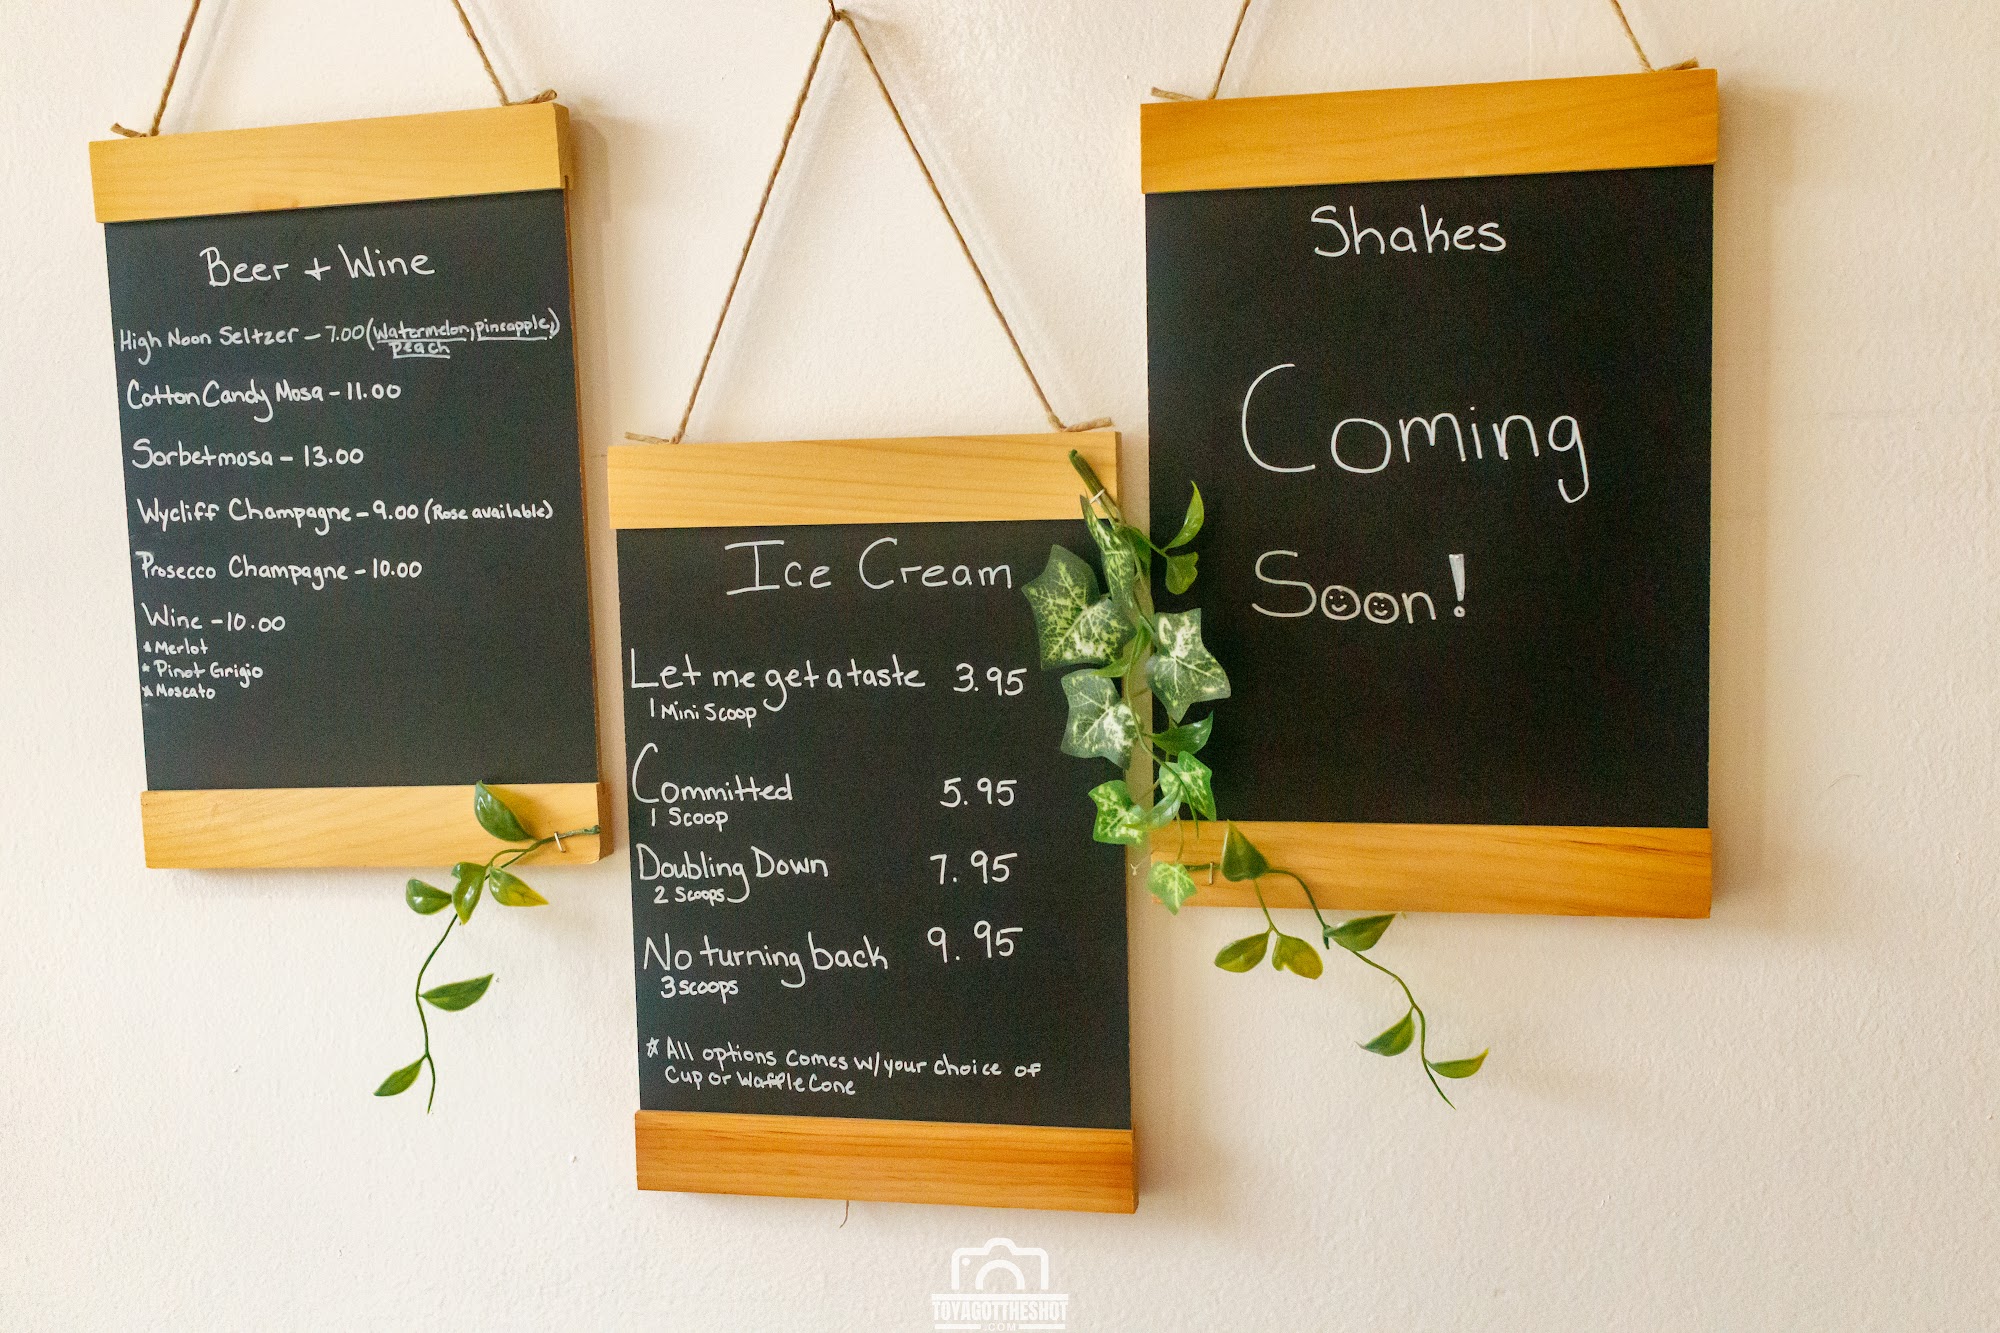 Beer + Wine
High Noon Seltzer - 7.00 (Watermelon, pineapple,)
peach
Cotton Candy Mosa - 11.00
Sorbetmosa - 13.00
Wycliff Champagne - 9.00 (Rose available)
Prosecco Champagne - 10.00
Wine - 10.00
* Merlot
* Pinot Grigio
* Moscato
Ice Cream
Let me get a taste 3.95
1 Mini Scoop
Committed 5.95
1 Scoop
Doubling Down 7.95
2 Scoops
No turning back 9.95
3 scoops
* All options comes w/your choice of
Cup or Waffle Cone
Shakes
Coming
Soon!
TOYAGOTTHESHOT
.COM